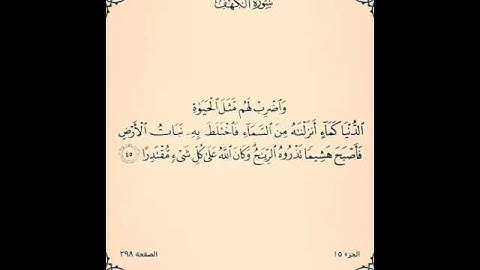 سُورَةُ الكَهْفِ
وَاضْرِبْ لَهُم مَّثَلَ الْحَيَوٰةِ
الدُّنْيَا كَمَاءٍ أَنزَلْنَٰهُ مِنَ السَّمَاءِ فَاخْتَلَطَ بِهِ نَبَاتُ الْأَرْضِ
فَأَصْبَحَ هَشِيمًا تَذْرُوهُ الرِّيَٰحُ وَكَانَ اللَّهُ عَلَىٰ كُلِّ شَيْءٍ مُّقْتَدِرًا ٤٥
الجزء ١٥
الصفحة ٢٩٨